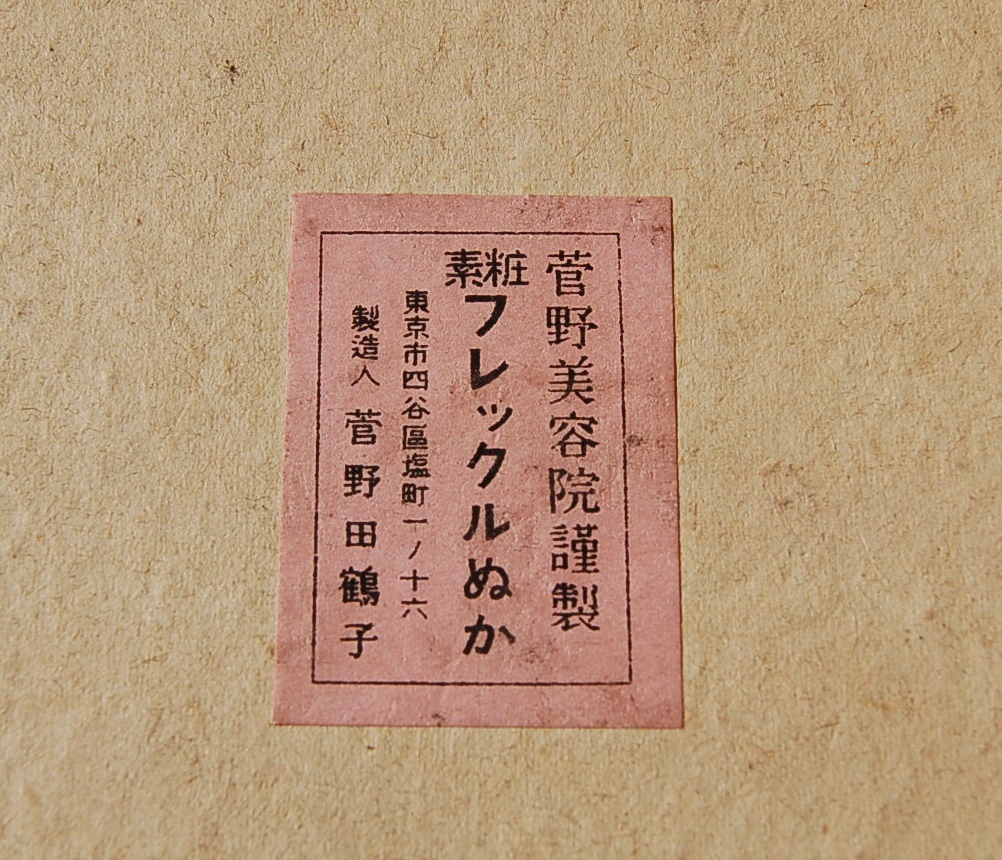 菅野美容院謹製
粧素
フレックルぬか
東京市四谷區塩町一ノ十六
製造人 菅野田鶴子